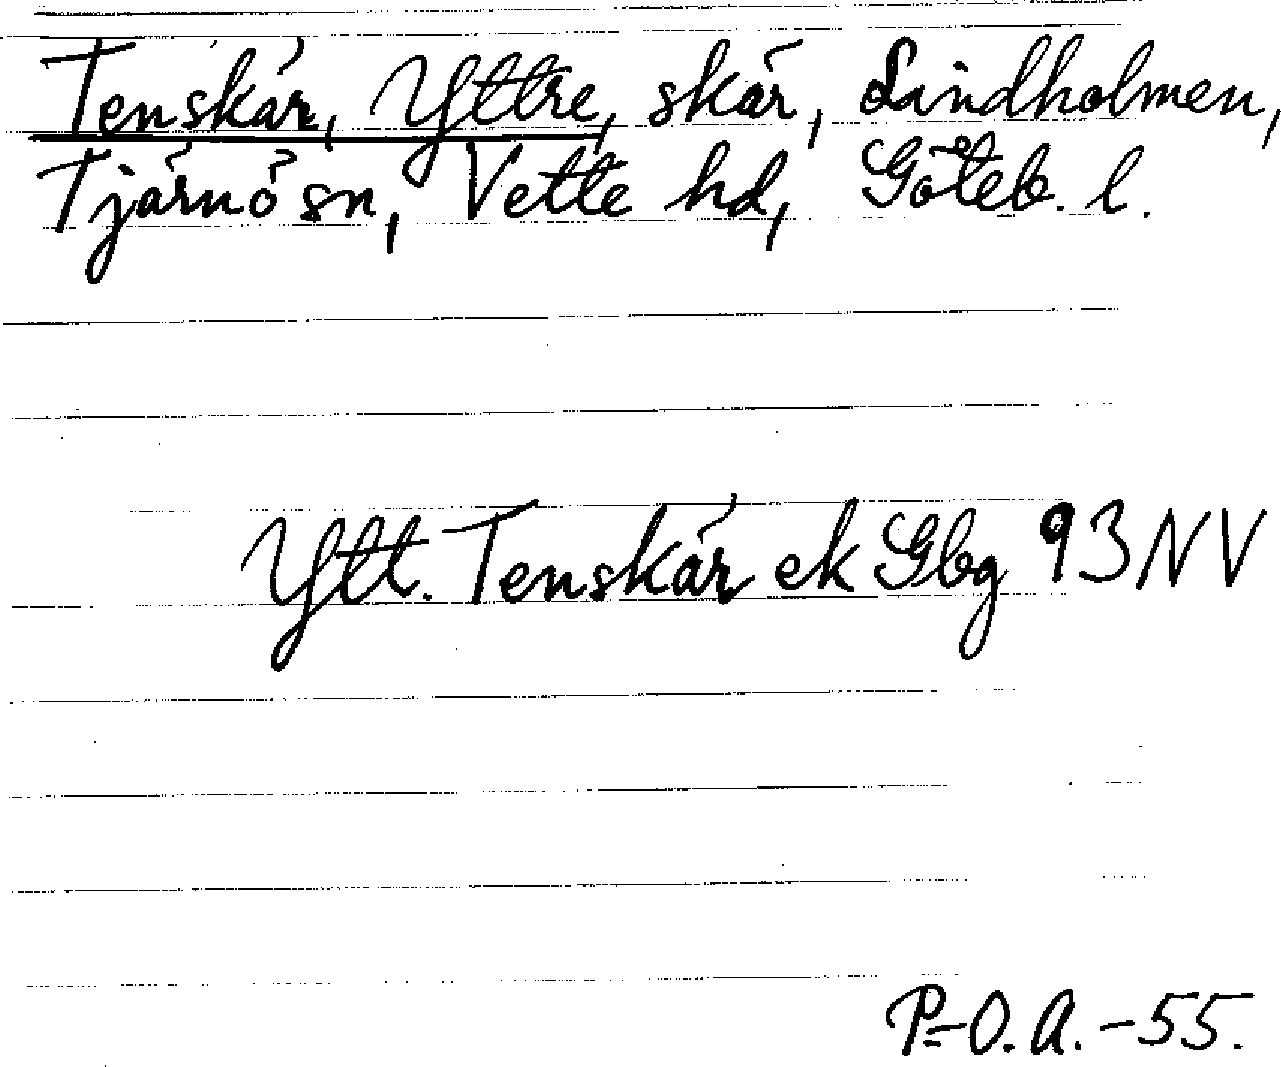 Tenskär, Yttre, skär, Lindholmen,
Tjärnö sn, Vette hd, Göteb. l.
Ytt. Tenskär ek Gbg 93 NV
P-O. A. -55.